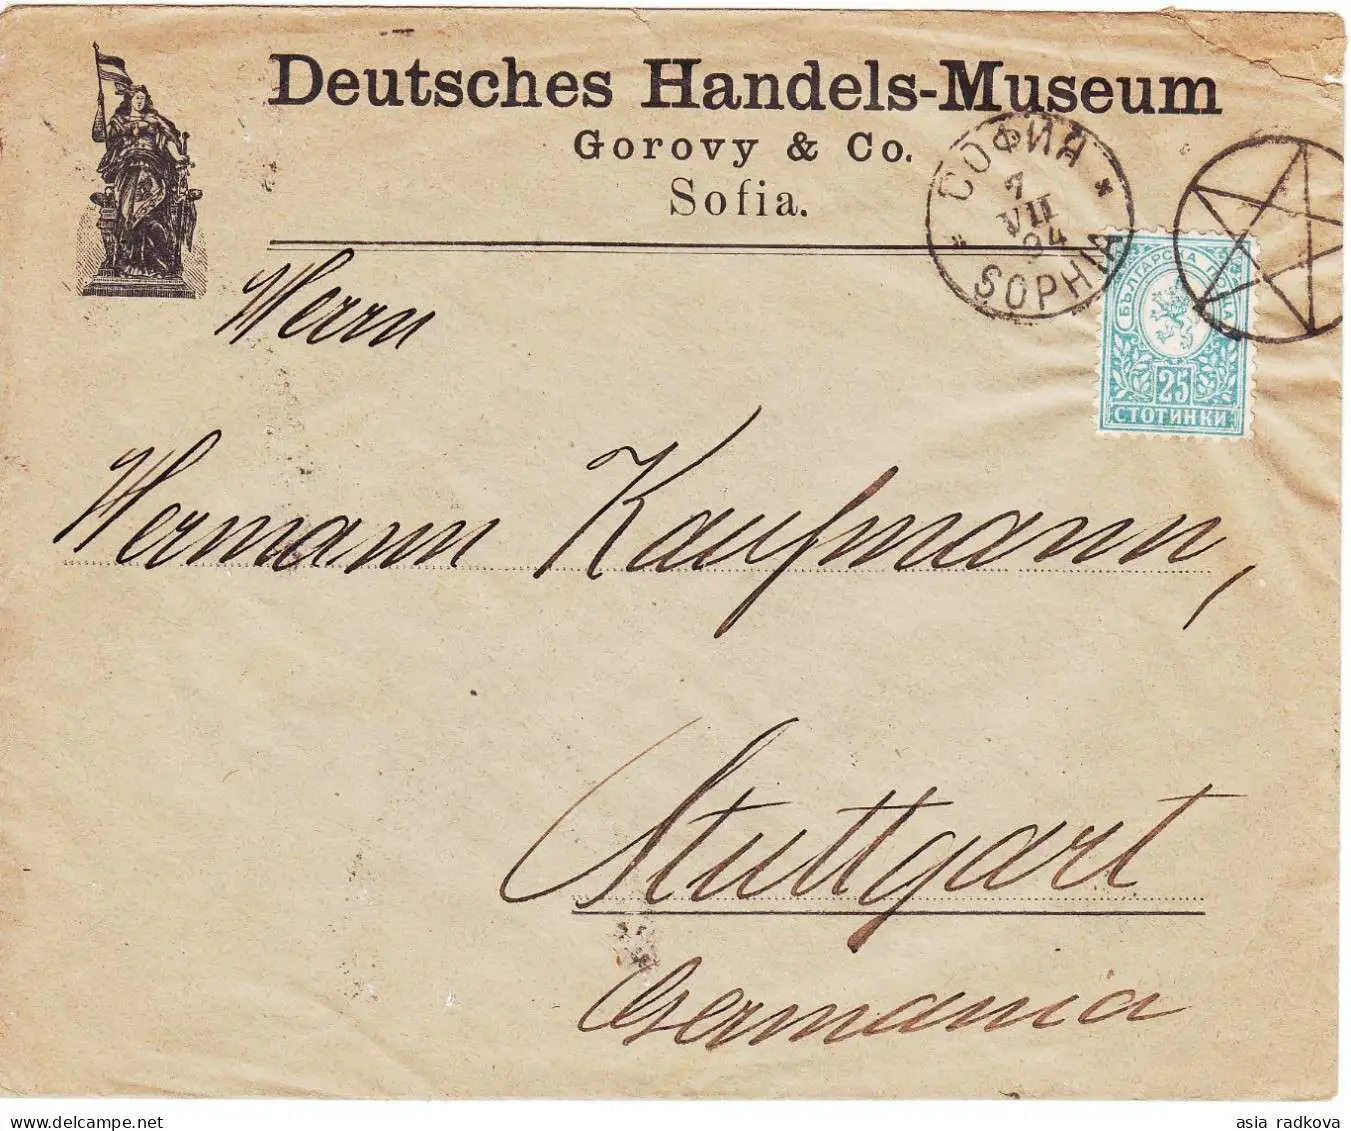 Deutsches Handels-Museum
Gorovy & Co.
Sofia.
СОФИЯ
7
VII
94
SOPHIA
БЪЛГАРСКА ПОЩА
25
СТОТИНКИ
Herrn
Hermann Kaufmann,
Stuttgart
Germania
delcampe.net
asia radkova